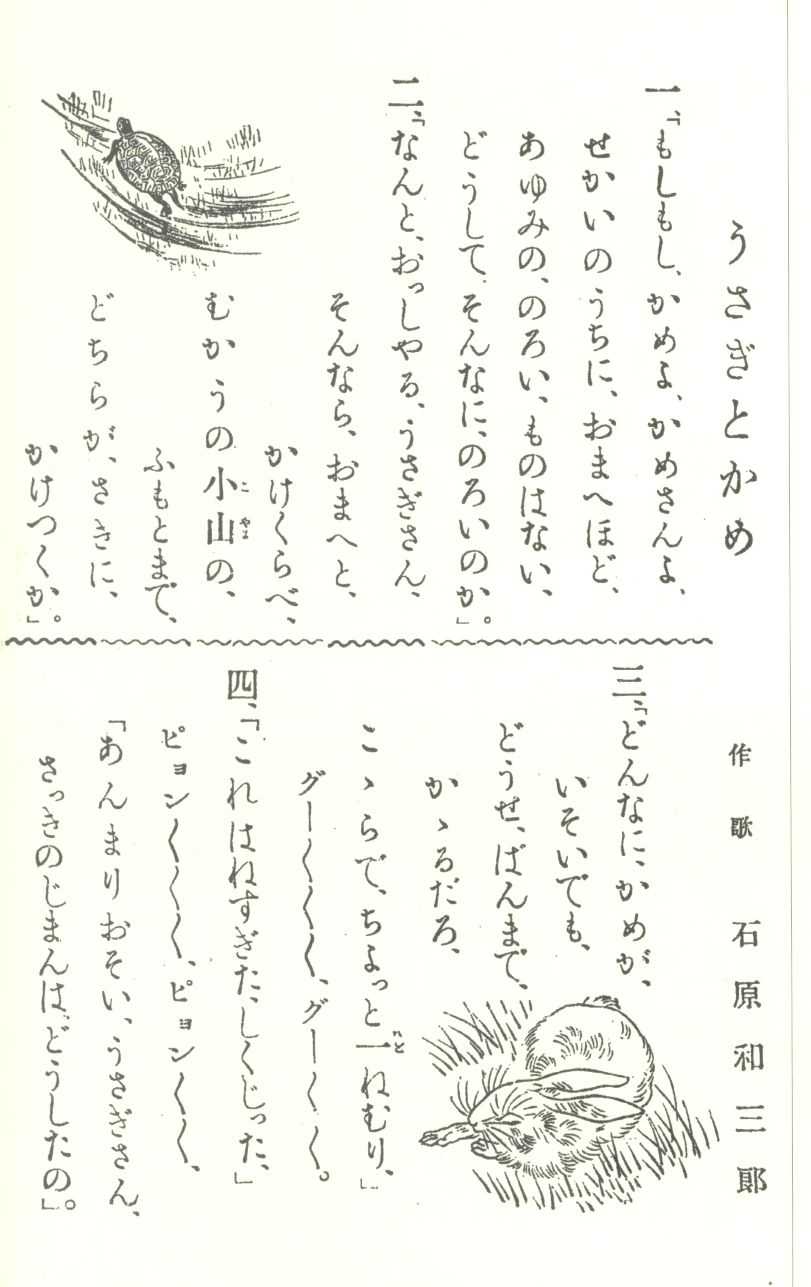 うさぎとかめ
作歌　石原和三郎
一、「もしもし、かめよ、かめさんよ、
せかいのうちに、おまへほど、
あゆみの、のろい、ものはない、
どうして、そんなに、のろいのか」。
二、「なんと、おっしやる、うさぎさん、
そんなら、おまへと、
かけくらべ、
むかうの小山の、
こやま
ふもとまで、
どちらが、さきに、
かけつくか」。
三、「どんなに、かめが、
いそいでも、
どうせ、ばんまで、
かゝるだろ、
こゝらで、ちょっと一ねむり、」
ひと
グー〱〱〱、グー〱〱。
四、「これはねすぎた、しくじった、」
ピョン〱〱〱、ピョン〱〱、
「あんまりおそい、うさぎさん、
さっきのじまんは、どうしたの」。